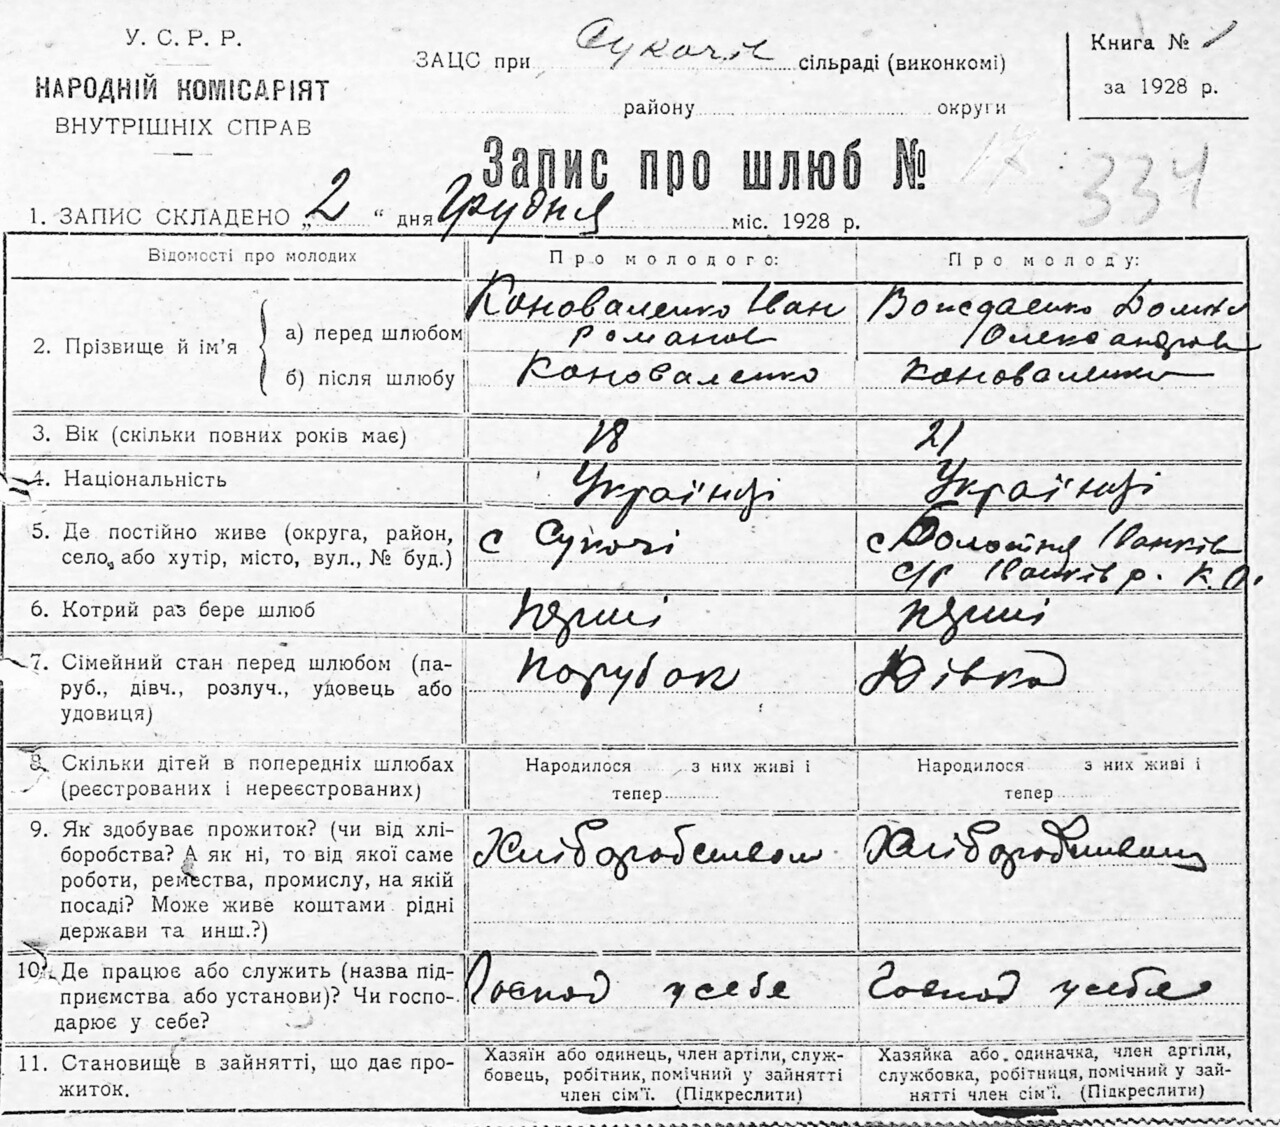 У. С. Р. Р.
НАРОДНІЙ КОМІСАРІЯТ
ВНУТРІШНІХ СПРАВ
ЗАЦС при Сукочів сільраді (виконкомі)
району округи
Книга № 1
за 1928 р.
Запис про шлюб № 334
1. ЗАПИС СКЛАДЕНО „ 2 “ дня Грудня міс. 1928 р.
Відомості про молодих
Про молодого:
Про молоду:
2. Прізвище й ім’я
а) перед шлюбом
Коноваленко Иван
Романов
Олександров
б) після шлюбу
Коноваленко
Коноваленко
3. Вік (скільки повних років має)
18
21
4. Національність
Українці
Українці
5. Де постійно живе (округа, район,
село, або хутір, місто, вул., № буд.)
с Сукочі
с Болотня Іванків
с/р Іванків р. К.О.
6. Котрий раз бере шлюб
перші
перші
7. Сімейний стан перед шлюбом (па-
руб., дівч., розлуч., удовець або
удовиця)
Парубок
Дівка
8. Скільки дітей в попередніх шлюбах
(реєстрованих і нереєстрованих)
Народилося з них живі і
тепер
Народилося з них живі і
тепер
9. Як здобуває прожиток? (чи від хлі-
боробства? А як ні, то від якої саме
роботи, ремества, промислу, на якій
посаді? Може живе коштами рідні
держави та инш.?)
Хліборобством
Хліборобством
10. Де працює або служить (назва під-
приємства або установи)? Чи госпо-
дарює у себе?
Господ у себе
Господ у себе
11. Становище в зайнятті, що дає про-
житок.
Хазяїн або одинець, член артіли, служ-
бовець, робітник, помічний у зайнятті
член сім’ї. (Підкреслити)
Хазяйка або одиначка, член артіли,
службовка, робітниця, помічний у зай-
нятті член сім’ї. (Підкреслити)